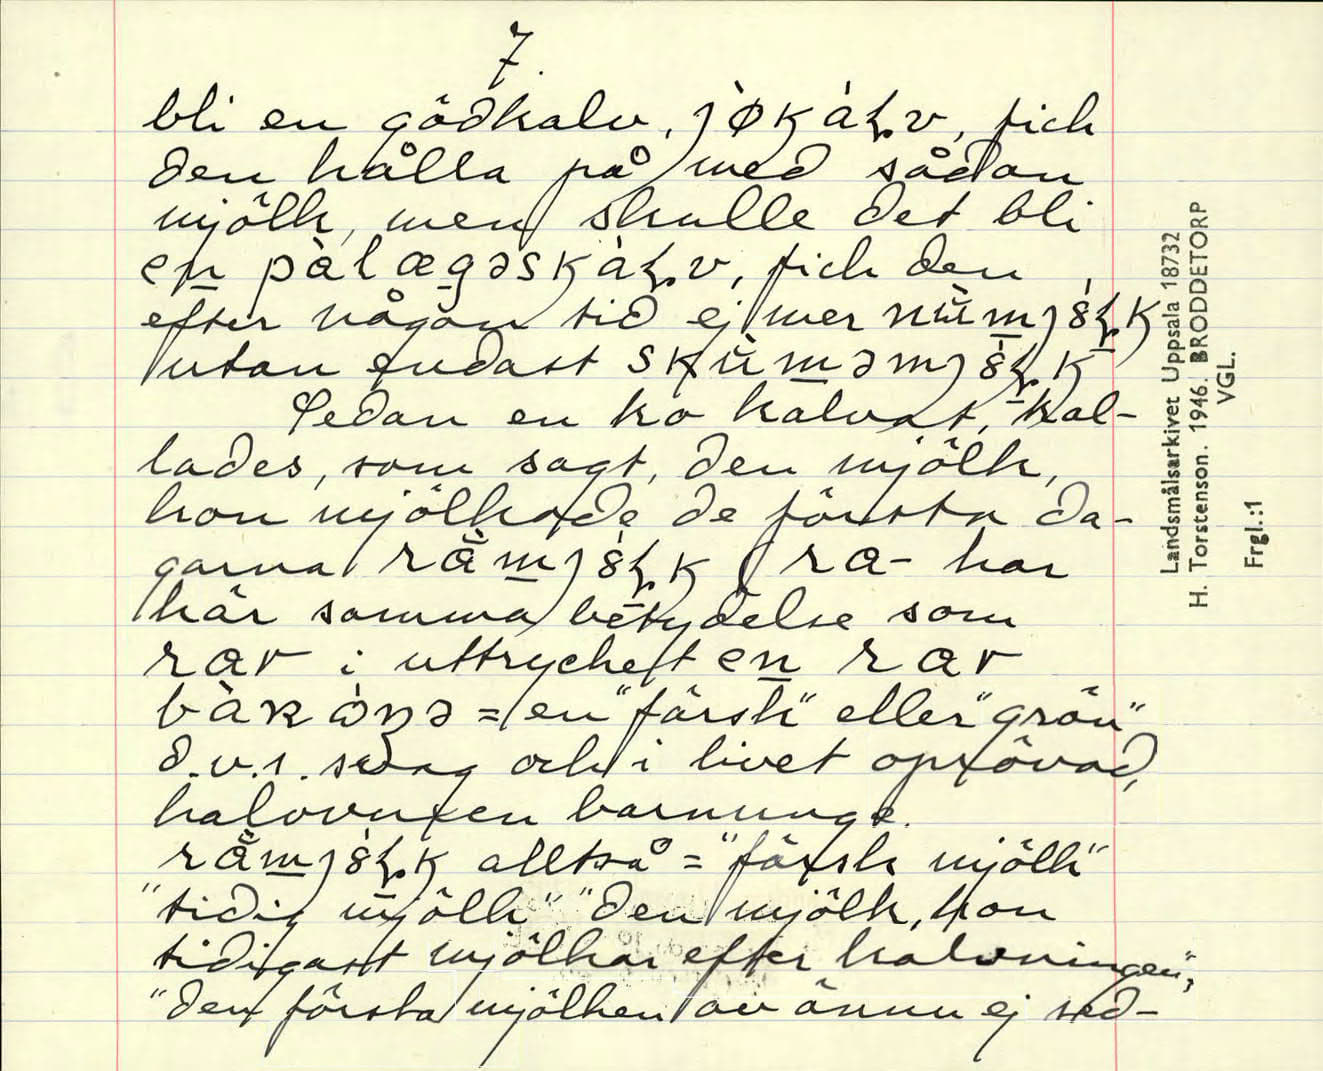 7.
bli en gödkalv, jø̀káɭv, fick
den hålla på med sådan
mjölk, men skulle det bli
en pàlægəskáɭv, fick den
efter någon tid ej mer
utan endast
Sedan en ko kalvat, kal-
lades, som sagt, den mjölk,
hon mjölkade de första da-
garna ra- har
här samma betydelse som
rar i uttrycket en rar
= en "färsk" eller "grön"
d.v.s. svag och i livet oprövad,
halvvuxen barnunge.
alltså = "färsk mjölk"
"tidig mjölk" "den mjölk, hon
tidigast mjölkar efter kalvningen",
"den första mjölken av ännu ej sed-
Landsmålsarkivet Uppsala 18732
H. Torstenson. 1946. BRODDETORP
VGL.
Frgl.:1